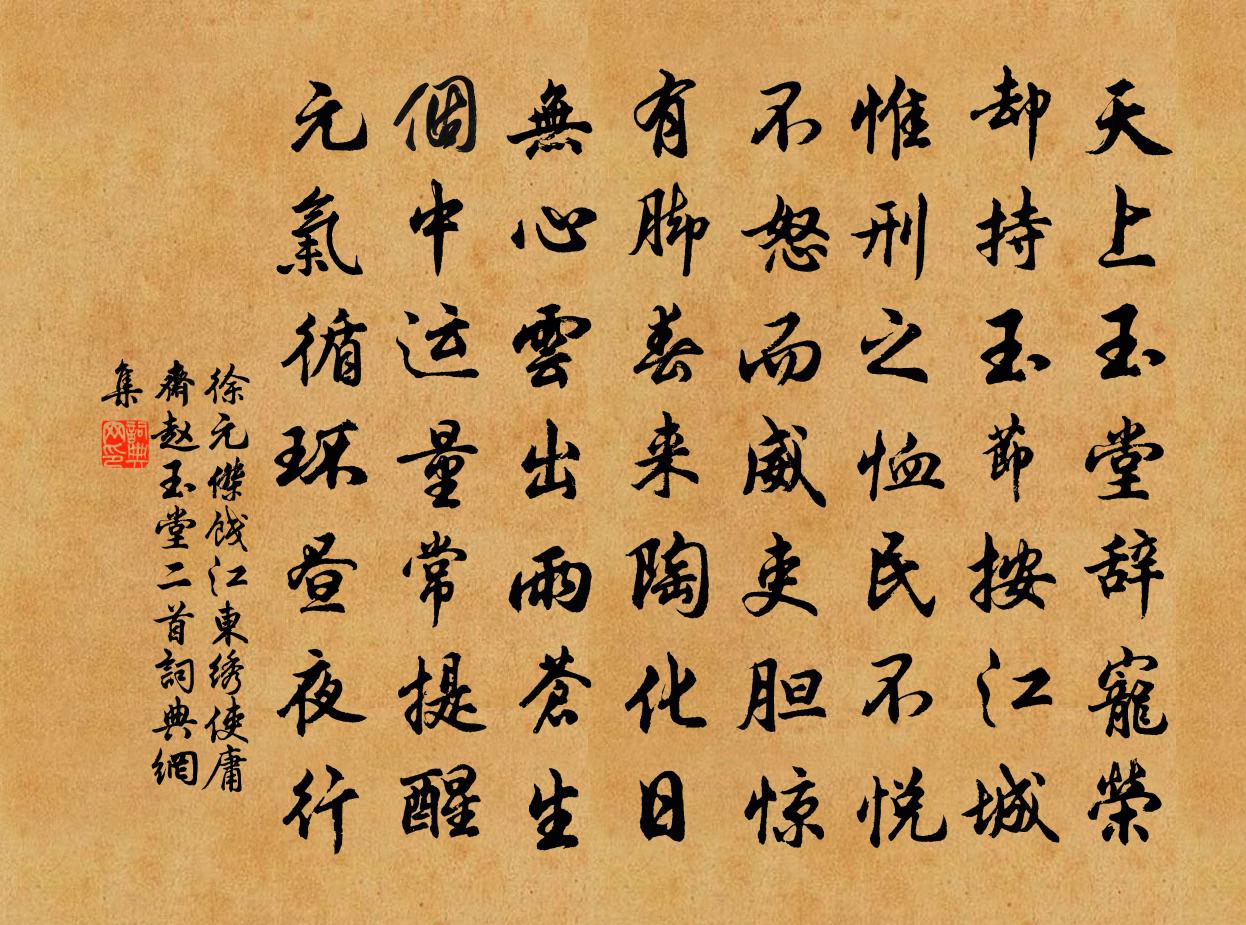 天上玉堂辞寵榮
却持玉節按江城
惟刑之恤民不悦
不怒而威吏胆惊
有脚春来陶化日
無心雲出雨蒼生
個中运量常提醒
元氣循环昼夜行
徐元傑餞江東绣使庸
齋赵玉堂二首詞典網
集
詞典网印